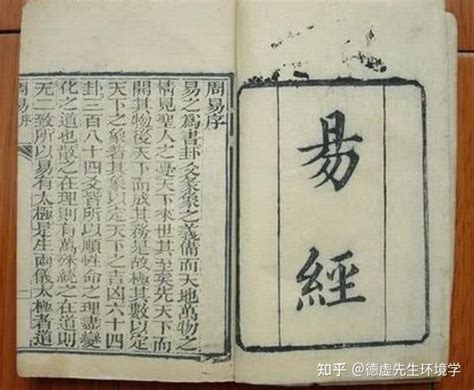 易經
周易序
易之爲書卦爻彖象之義備而天地萬物之
情見聖人之憂天下來世其至矣先天下而
開其物後天下而成其務是故極其數以定
天下之象著其象以定天下之吉凶六十四
卦三百八十四爻皆所以順性命之理盡變
化之道也散之在理則有萬殊統之在道則
无二致所以易有太極是生兩儀太極者道
周易序
知乎 @德虚先生环境学